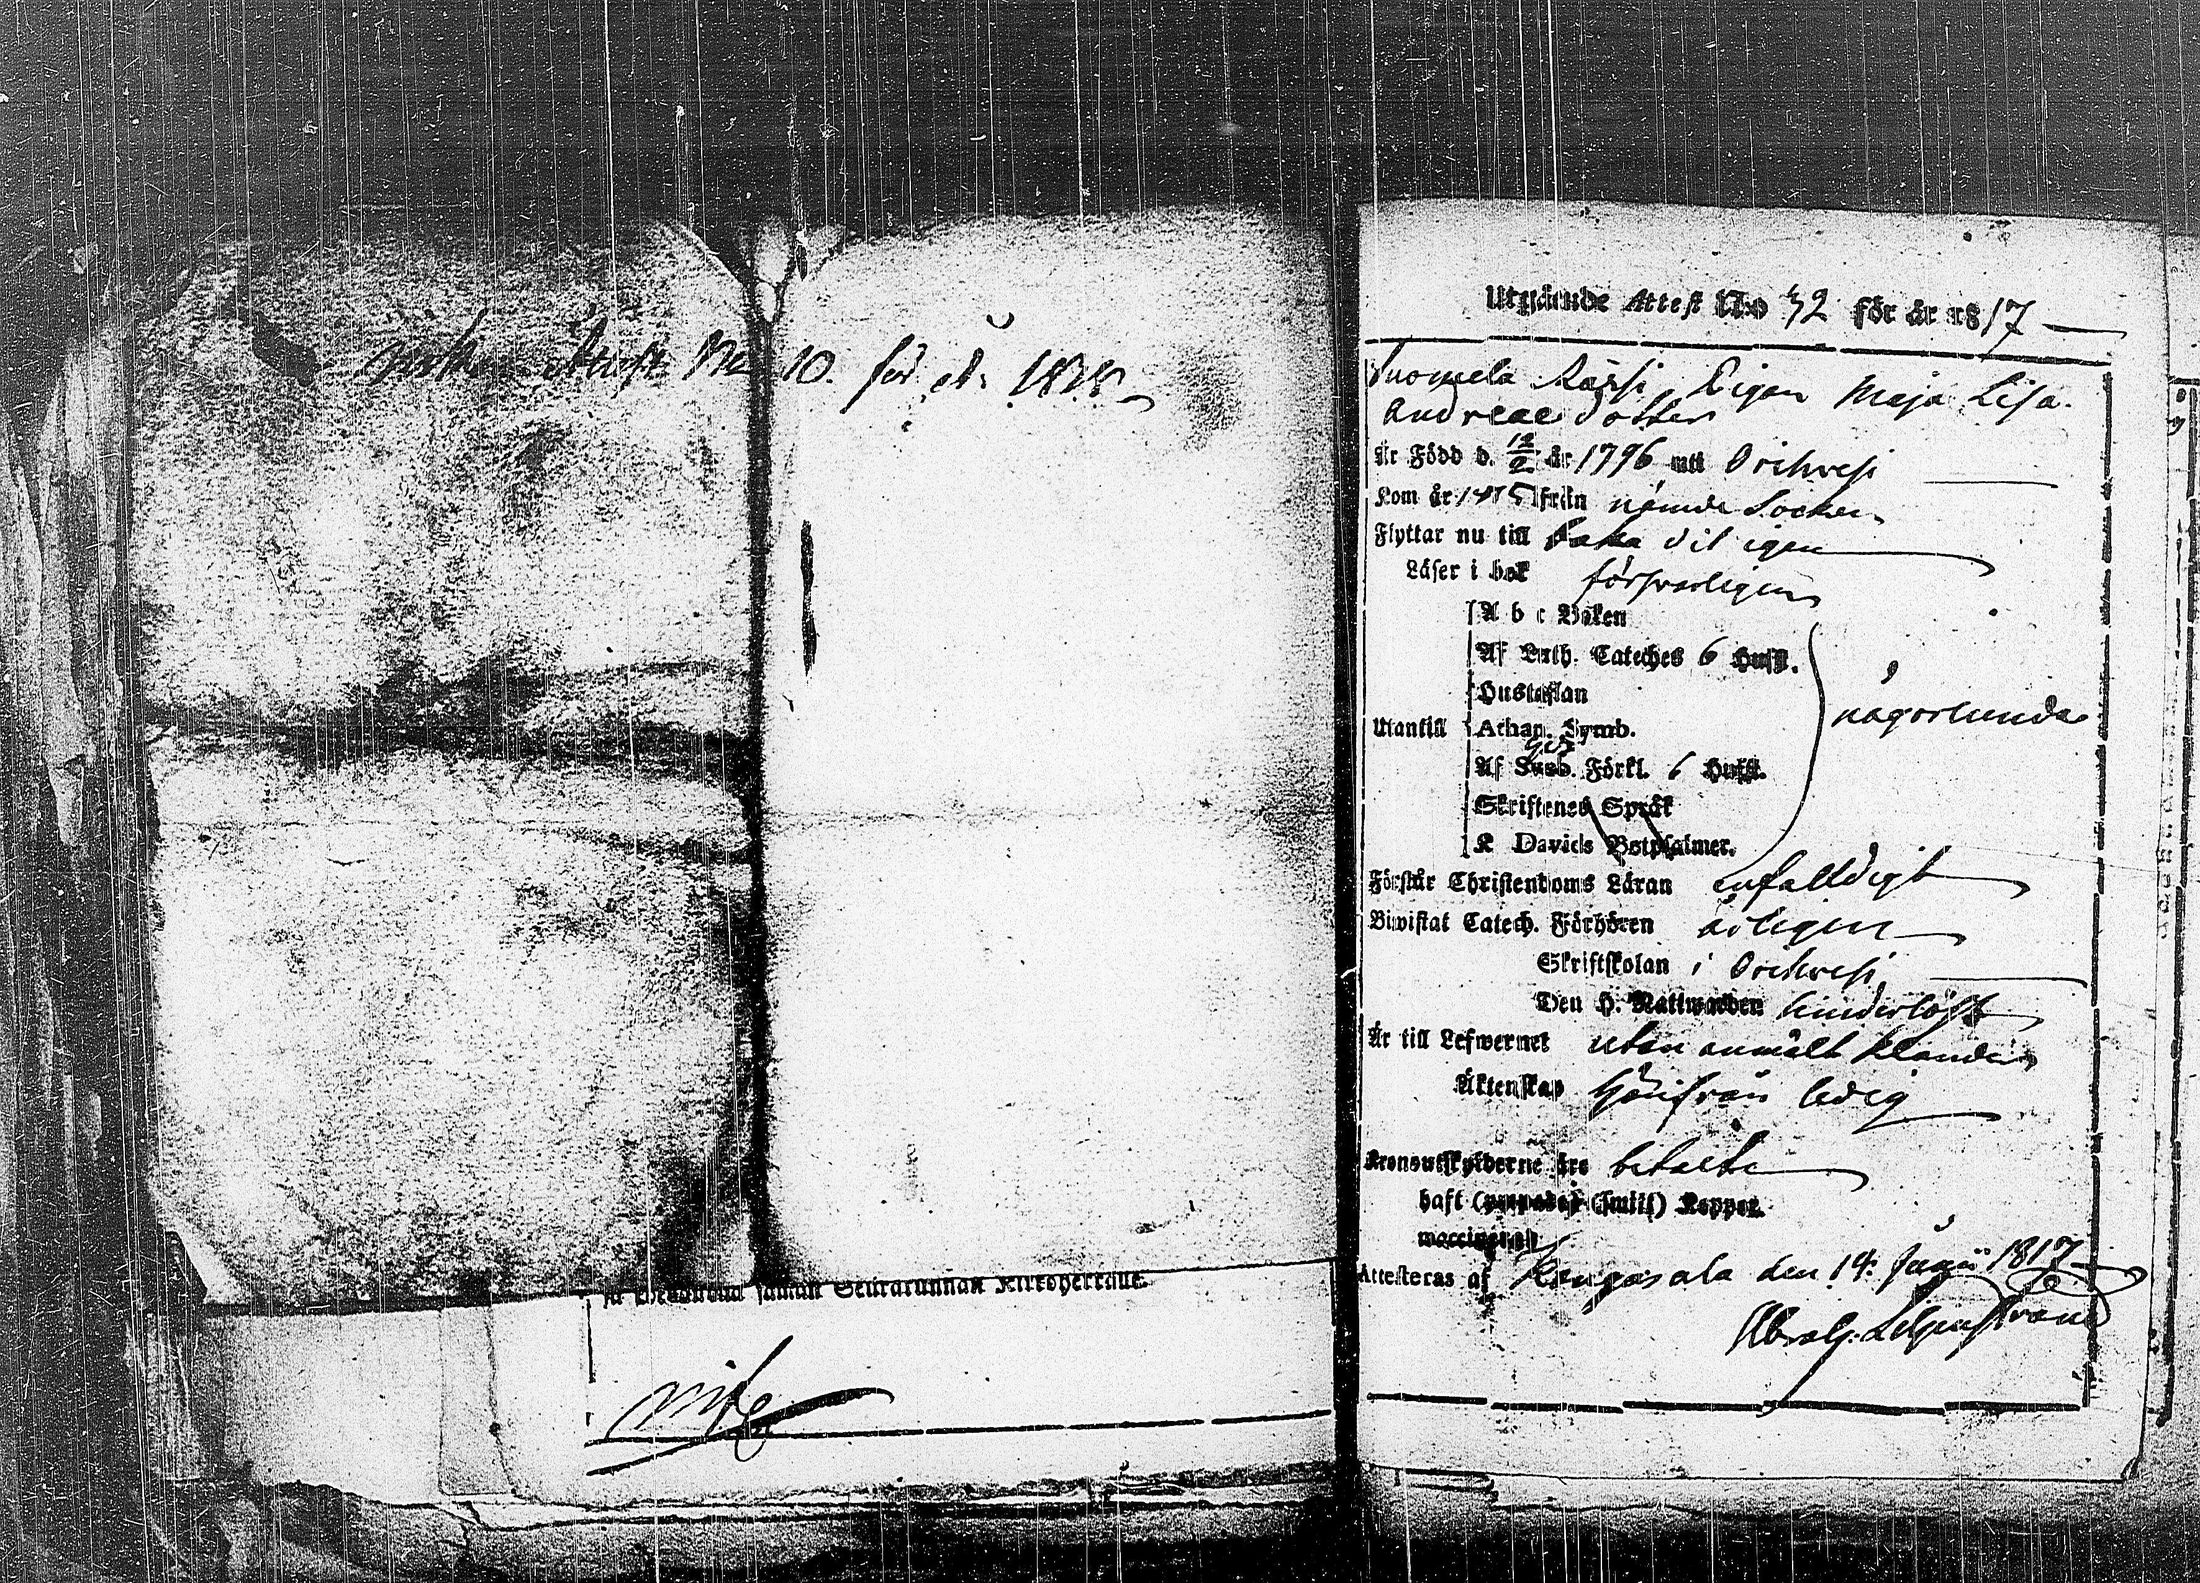 Attest No 10. för år 18
saman Seurakunnan Kirkoherralle
Utgående Attest No 32 för år 1817
Suomela Pigan Maja Lisa
Andreae dotter
Är Född d. 12/2 år 1796 uti Orihvesi
Kom år 1815 ifrån nämde Socken
Flyttar nu till baka dit igen
Läser i bok försvarligen
A b c Boken
Af Luth. Cateches 6 Hufst.
Hustaflan
Utantill Athan. Symb. någorlunda
Af Förkl. 6 Hufst.
Skriftenes Språk
K Davids Botpsalmer.
Förstår Christendoms Läran enfalldigt
Biwistat Catech. Förhören årligen
Skriftskolan i Orihvesi
Den H. Nattwarden hinderlöst
Är till Lefwernet utan anmält klander
Äktenskap härifrån ledig
Kronoutskylderne äro betalte
haft Koppor.
waccinerad
Attesteras af Kangasala den 14 Junii 1817
Abrah. Lilljenstrand